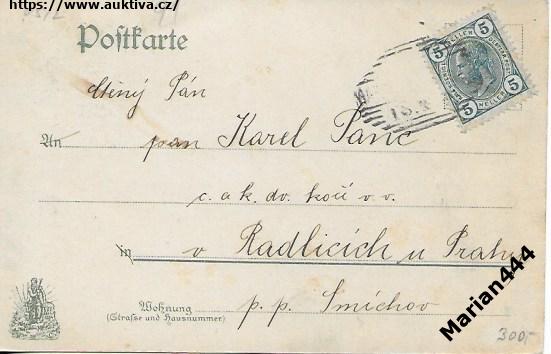 https://www.auktiva.cz/
Postkarte
5 HELLER 5
5 HELLER 5
Ctěný Pán
An pan Karel Panc
c. a k. dv. kočí v. v.
in v Radlicích u Prahy
Wohnung
(Strasse und Hausnummer)
p. p. Smíchov
Marian444
300,-